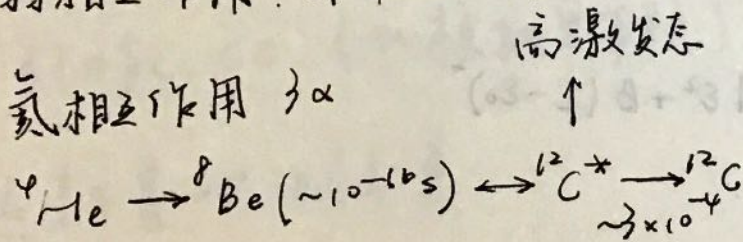 高激发态
氦相互作用 3α
↑
⁴He → ⁸Be (~10⁻¹⁶s) ↔ ¹²C* → ¹²C
~3×10⁻⁴